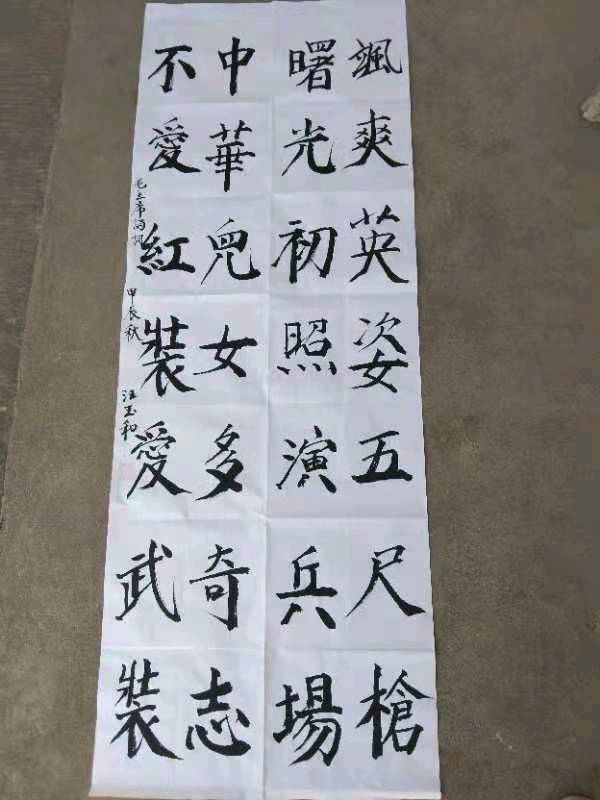 颯爽英姿五尺槍
曙光初照演兵場
中華兒女多奇志
不愛紅裝愛武裝
毛主席詞 甲辰秋 汪玉和